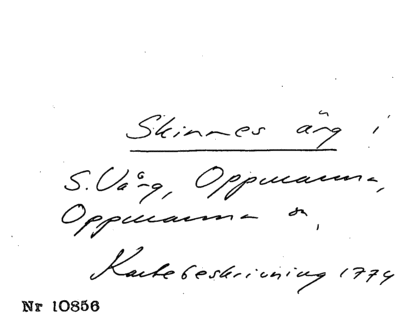 Skinnes äng i
S. Vång, Oppmanna,
Oppmanna sn,
Kartebeskrivning 1774
Nr 10856